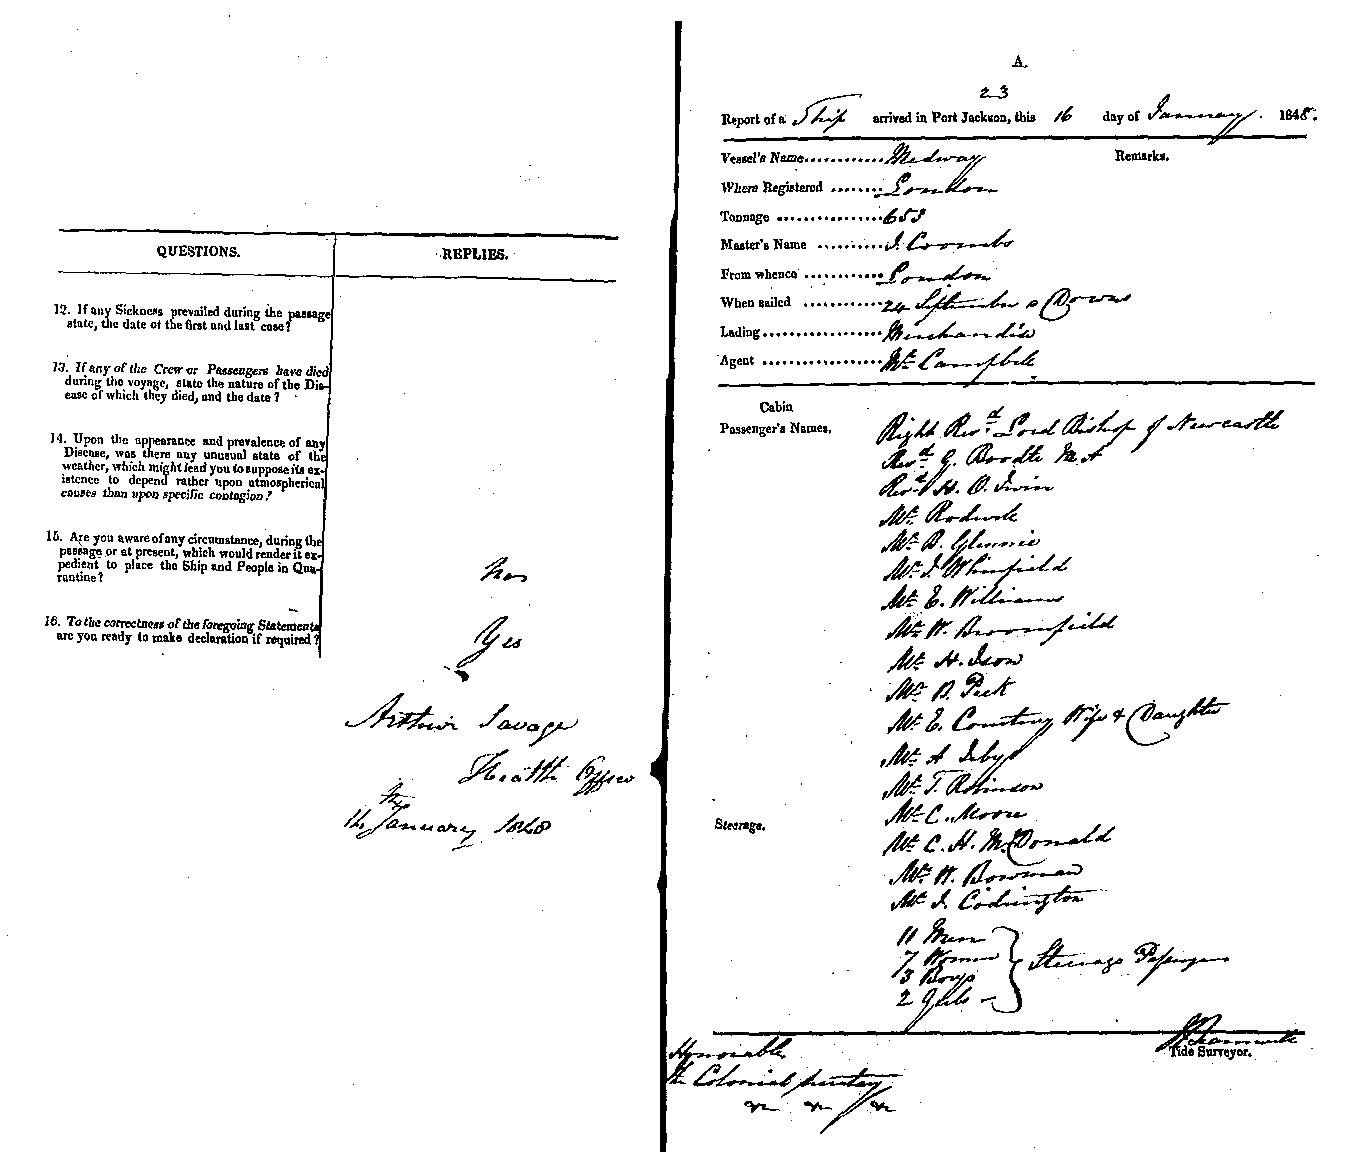 QUESTIONS. REPLIES.
12. If any Sickness prevailed during the passage
state, the date of the first and last case?
13. If any of the Crew or Passengers have died
during the voyage, state the nature of the Dis-
ease of which they died, and the date?
14. Upon the appearance and prevalence of any
Disease, was there any unusual state of the
weather, which might lead you to suppose its ex-
istence to depend rather upon atmospherical
causes than upon specific contagion?
15. Are you aware of any circumstance, during the
passage or at present, which would render it ex-
pedient to place the Ship and People in Qua-
rantine?
16. To the correctness of the foregoing Statements
are you ready to make declaration if required?
Yes
Arthur Savage
Health Officer
January 1848
A.
23
Report of a Ship arrived in Port Jackson, this 16 day of January. 1848.
Vessel's Name............Medway Remarks.
Where Registered ........London
Tonnage ...............653
Master's Name ..........J. Coombs
From whence ............London
When sailed ............24 September a Downs
Lading..................Merchandise
Agent ..................Mr. Campbell
Cabin
Passenger's Names,
Right Revd. Lord Bishop of Newcastle
Revd. G. Boodle M A
Revd. H. O. Irwin
Mr. Rodwell
Mr. B. Glennie
Mr. J. Whinfield
Mr. E. Williams
Mr. W. Broomfield
Mr. H. Ison
Mr. B. Peek
Mr. E. Courtney Wife & Daughter
Mr. A Irby
Mr. T. Robinson
Mr. C. Moore
Steerage.
Mr. C. H. McDonald
Mr. W. Bowman
Mr. J. Codrington
11 Men
7 Women
3 Boys
2 Girls
Steerage Passengers
Tide Surveyor.
Honorable
The Colonial Secretary
&c &c &c